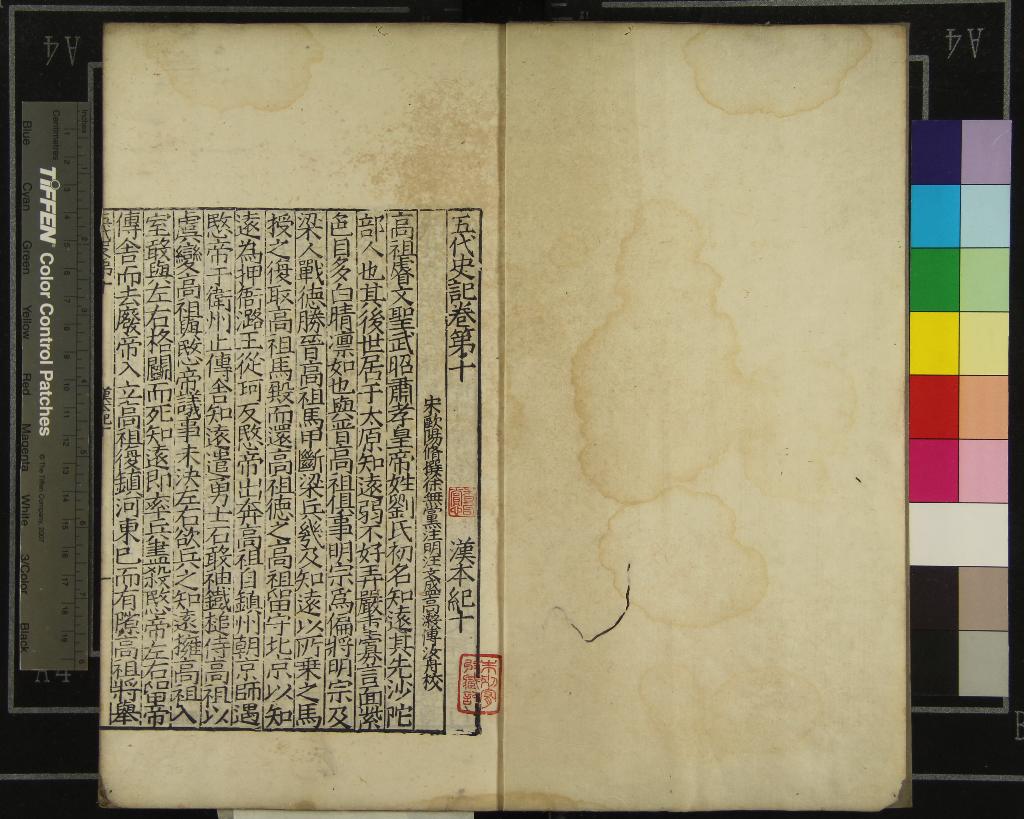 五代史記卷第十 漢本紀十
宋歐陽脩撰徐無黨注明汪文盛高瀔傅汝舟校
高祖睿文聖武昭肅孝皇帝姓劉氏初名知遠其先沙陀
部人也其後世居于太原知遠弱不好弄嚴重寡言面紫
色目多白睛凛如也與晉高祖俱事明宗為偏將明宗及
梁人戰德勝晉高祖馬甲斷梁兵幾及知遠以所乗之馬
授之復取高祖馬殿而還高祖德之高祖留守北京以知
遠為押衙潞王從珂反愍帝出奔高祖自鎮州朝京師遇
愍帝于衛州止傳舍知遠遣勇士石敢袖鐵槌侍高祖以
虞變高祖與愍帝議事未決左右欲兵之知遠擁高祖入
室敢與左右格鬭而死知遠即率兵盡殺愍帝左右留帝
傳舍而去廢帝入立高祖復鎮河東已而有隙高祖將舉
A4
A4
TIFFEN Color Control Patches
© The Tiffen Company, 2007
Inches
Centimetres
Blue Cyan Green Yellow Red Magenta White 3/Color Black